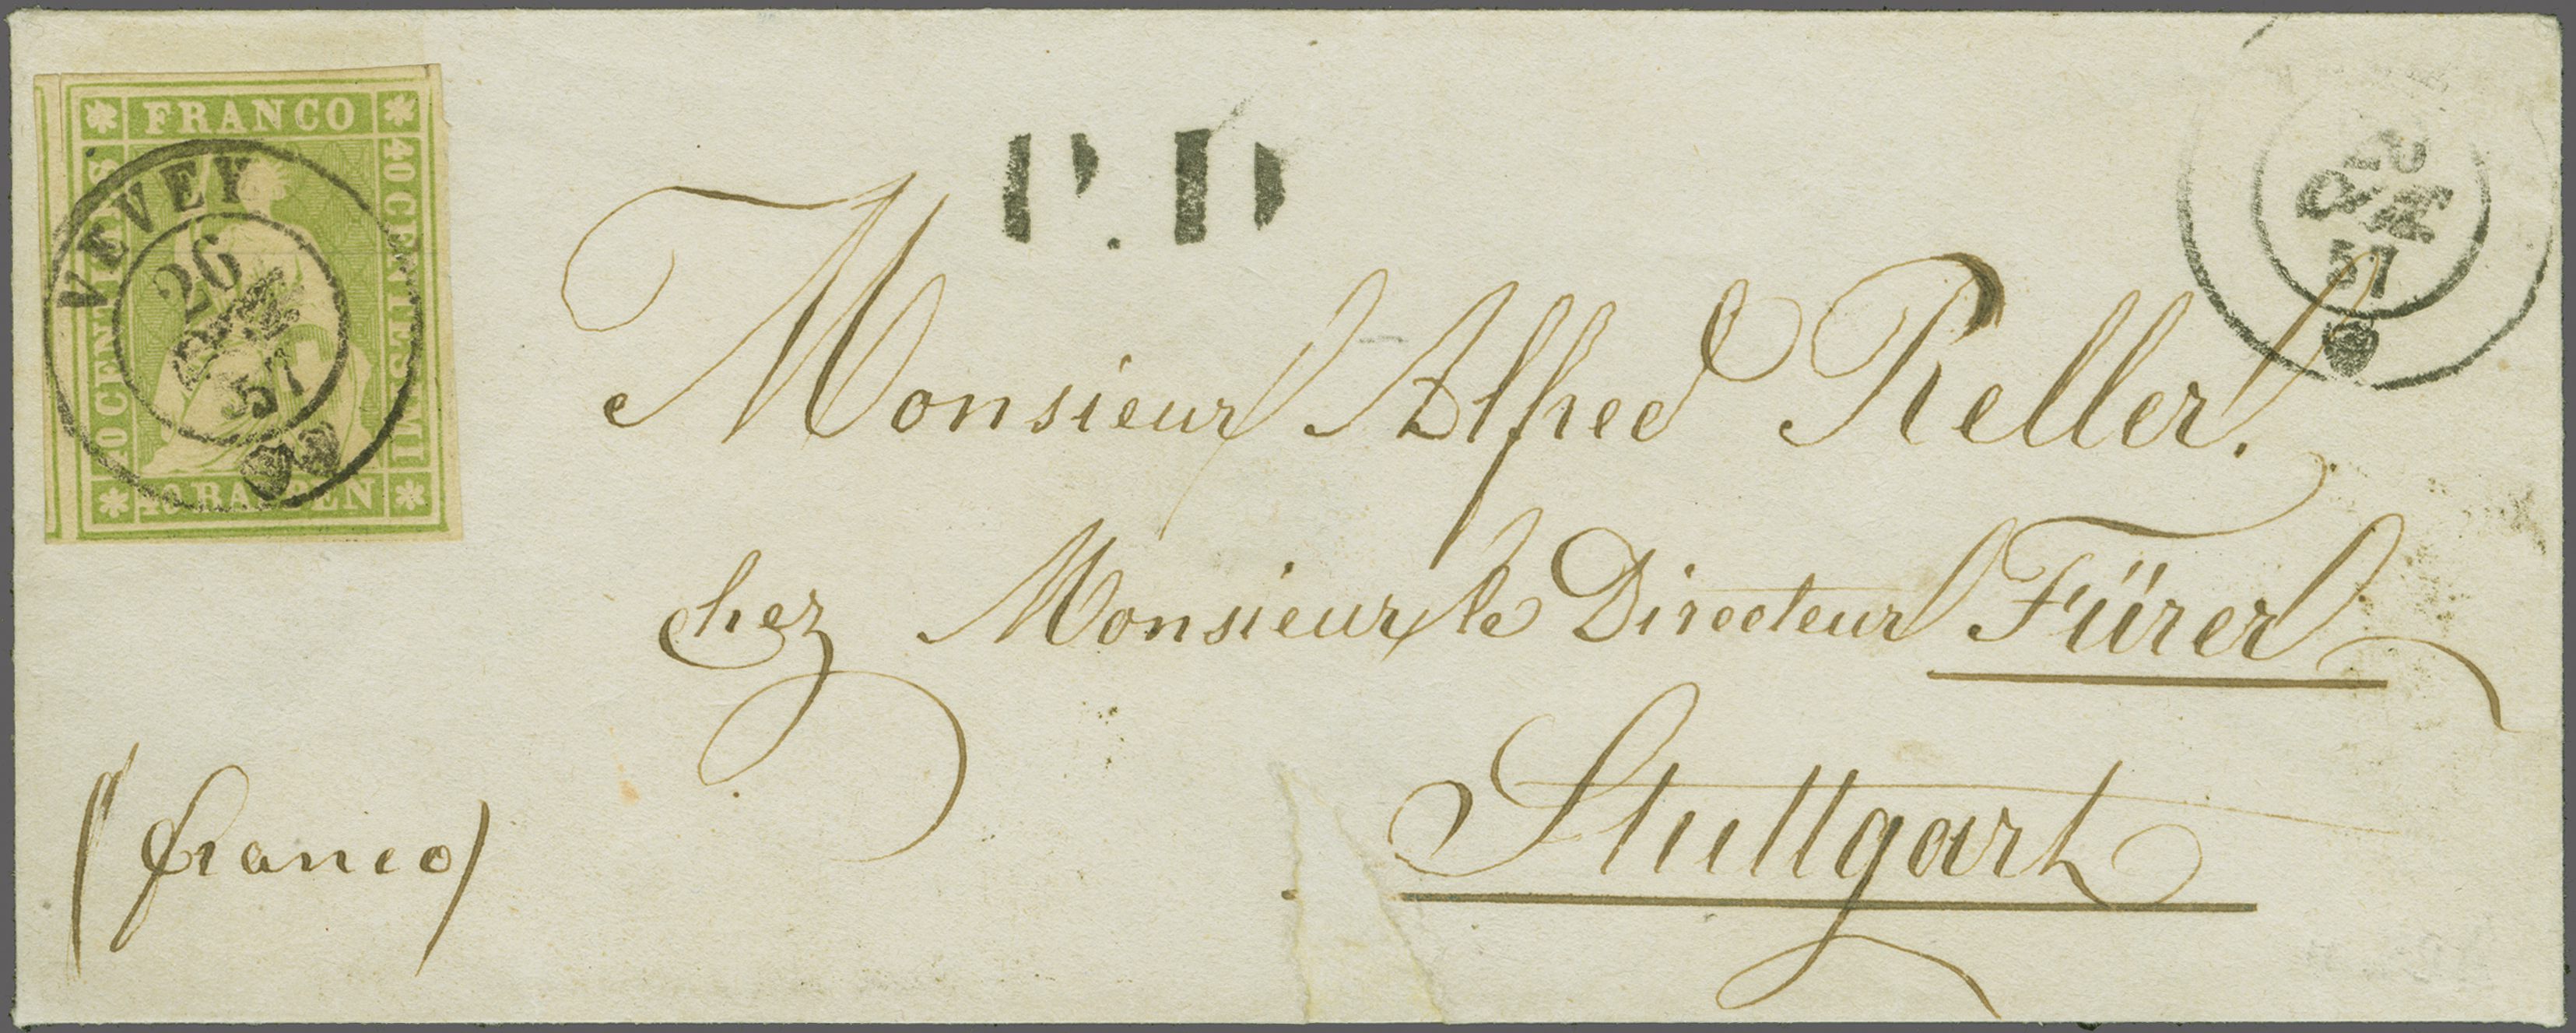 FRANCO
40 CENTIMES
40 CENTESIMI
40 RAPPEN
VEVEY
26
57
P.D
57
Monsieur Alfred Keller.
chez Monsieur le Directeur Fürer
Stuttgart
(franco)